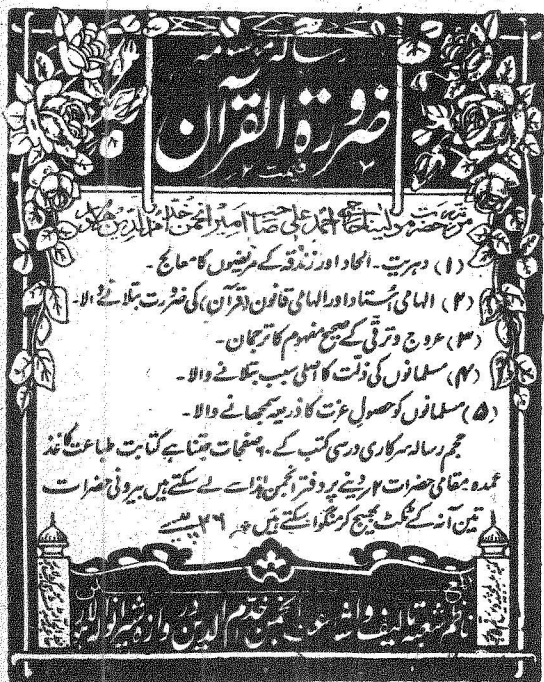 رسالہ موسومہ
ضرورۃ القرآن
قیمت ۲
مرتبہ حضرت مولینا احمد علی صاحب امیر انجمن خدام الدین
(۱) دہریت۔ الحاد اور زندقہ کے مریضوں کا معالج۔
(۲) الہامی اُستاد اور الہامی قانون (قرآن) کی ضرورت بتلانے والا۔
(۳) عروج وترقی کے صحیح مفہوم کا ترجمان۔
(۴) مسلمانوں کی ذلت کا اصلی سبب بتلانے والا۔
(۵) مسلمانوں کو حصولِ عزت کا ذریعہ سمجھانے والا۔
حجم رسالہ سرکاری درسی کتب کے صفحات جتنا ہے کتابت طباعت کاغذ
عمدہ مقامی حضرات ۲ دینے پر دفتر انجمن ہذا سے لے سکتے ہیں بیرونی حضرات
تین آنہ کے ٹکٹ بھیج کر منگوا سکتے ہیں
ناظم شعبہ تالیف واشاعت انجمن خدام الدین دروازہ شیرانوالہ لاہور